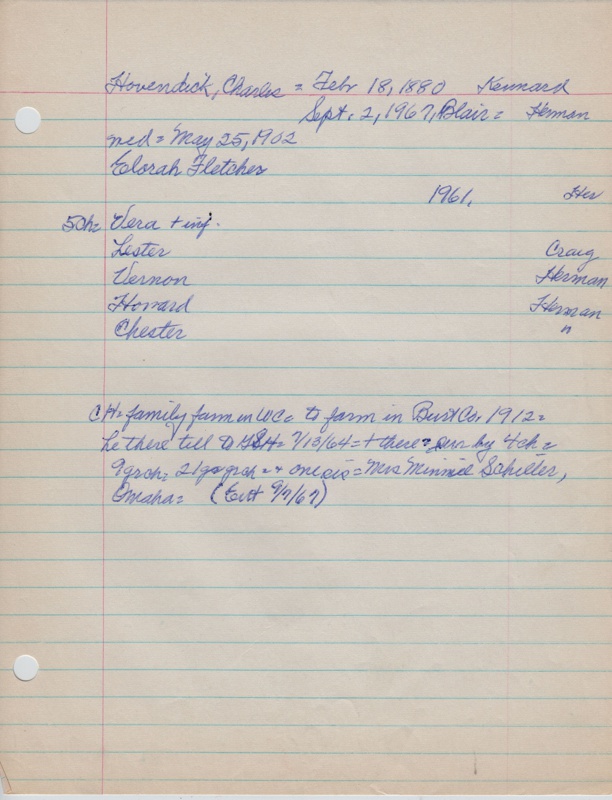 Hovendick, Charles = Febr 18, 1880 Kennard
Sept. 2, 1967, Blair = Herman
med = May 25, 1902
Elorah Fletcher
1961, Her
5 Ch = Vera + inf.
Lester Craig
Vernon Herman
Howard Herman
Chester "
CH = family farm in WCo to farm in Burt Co. 1912 =
he there till to GSH = 7/13/64 = + there = sur by 4 ch =
9 grch = 21 gr grch = + one sis = Mrs Minnie Schiller,
Omaha = (Ent 9/7/67)